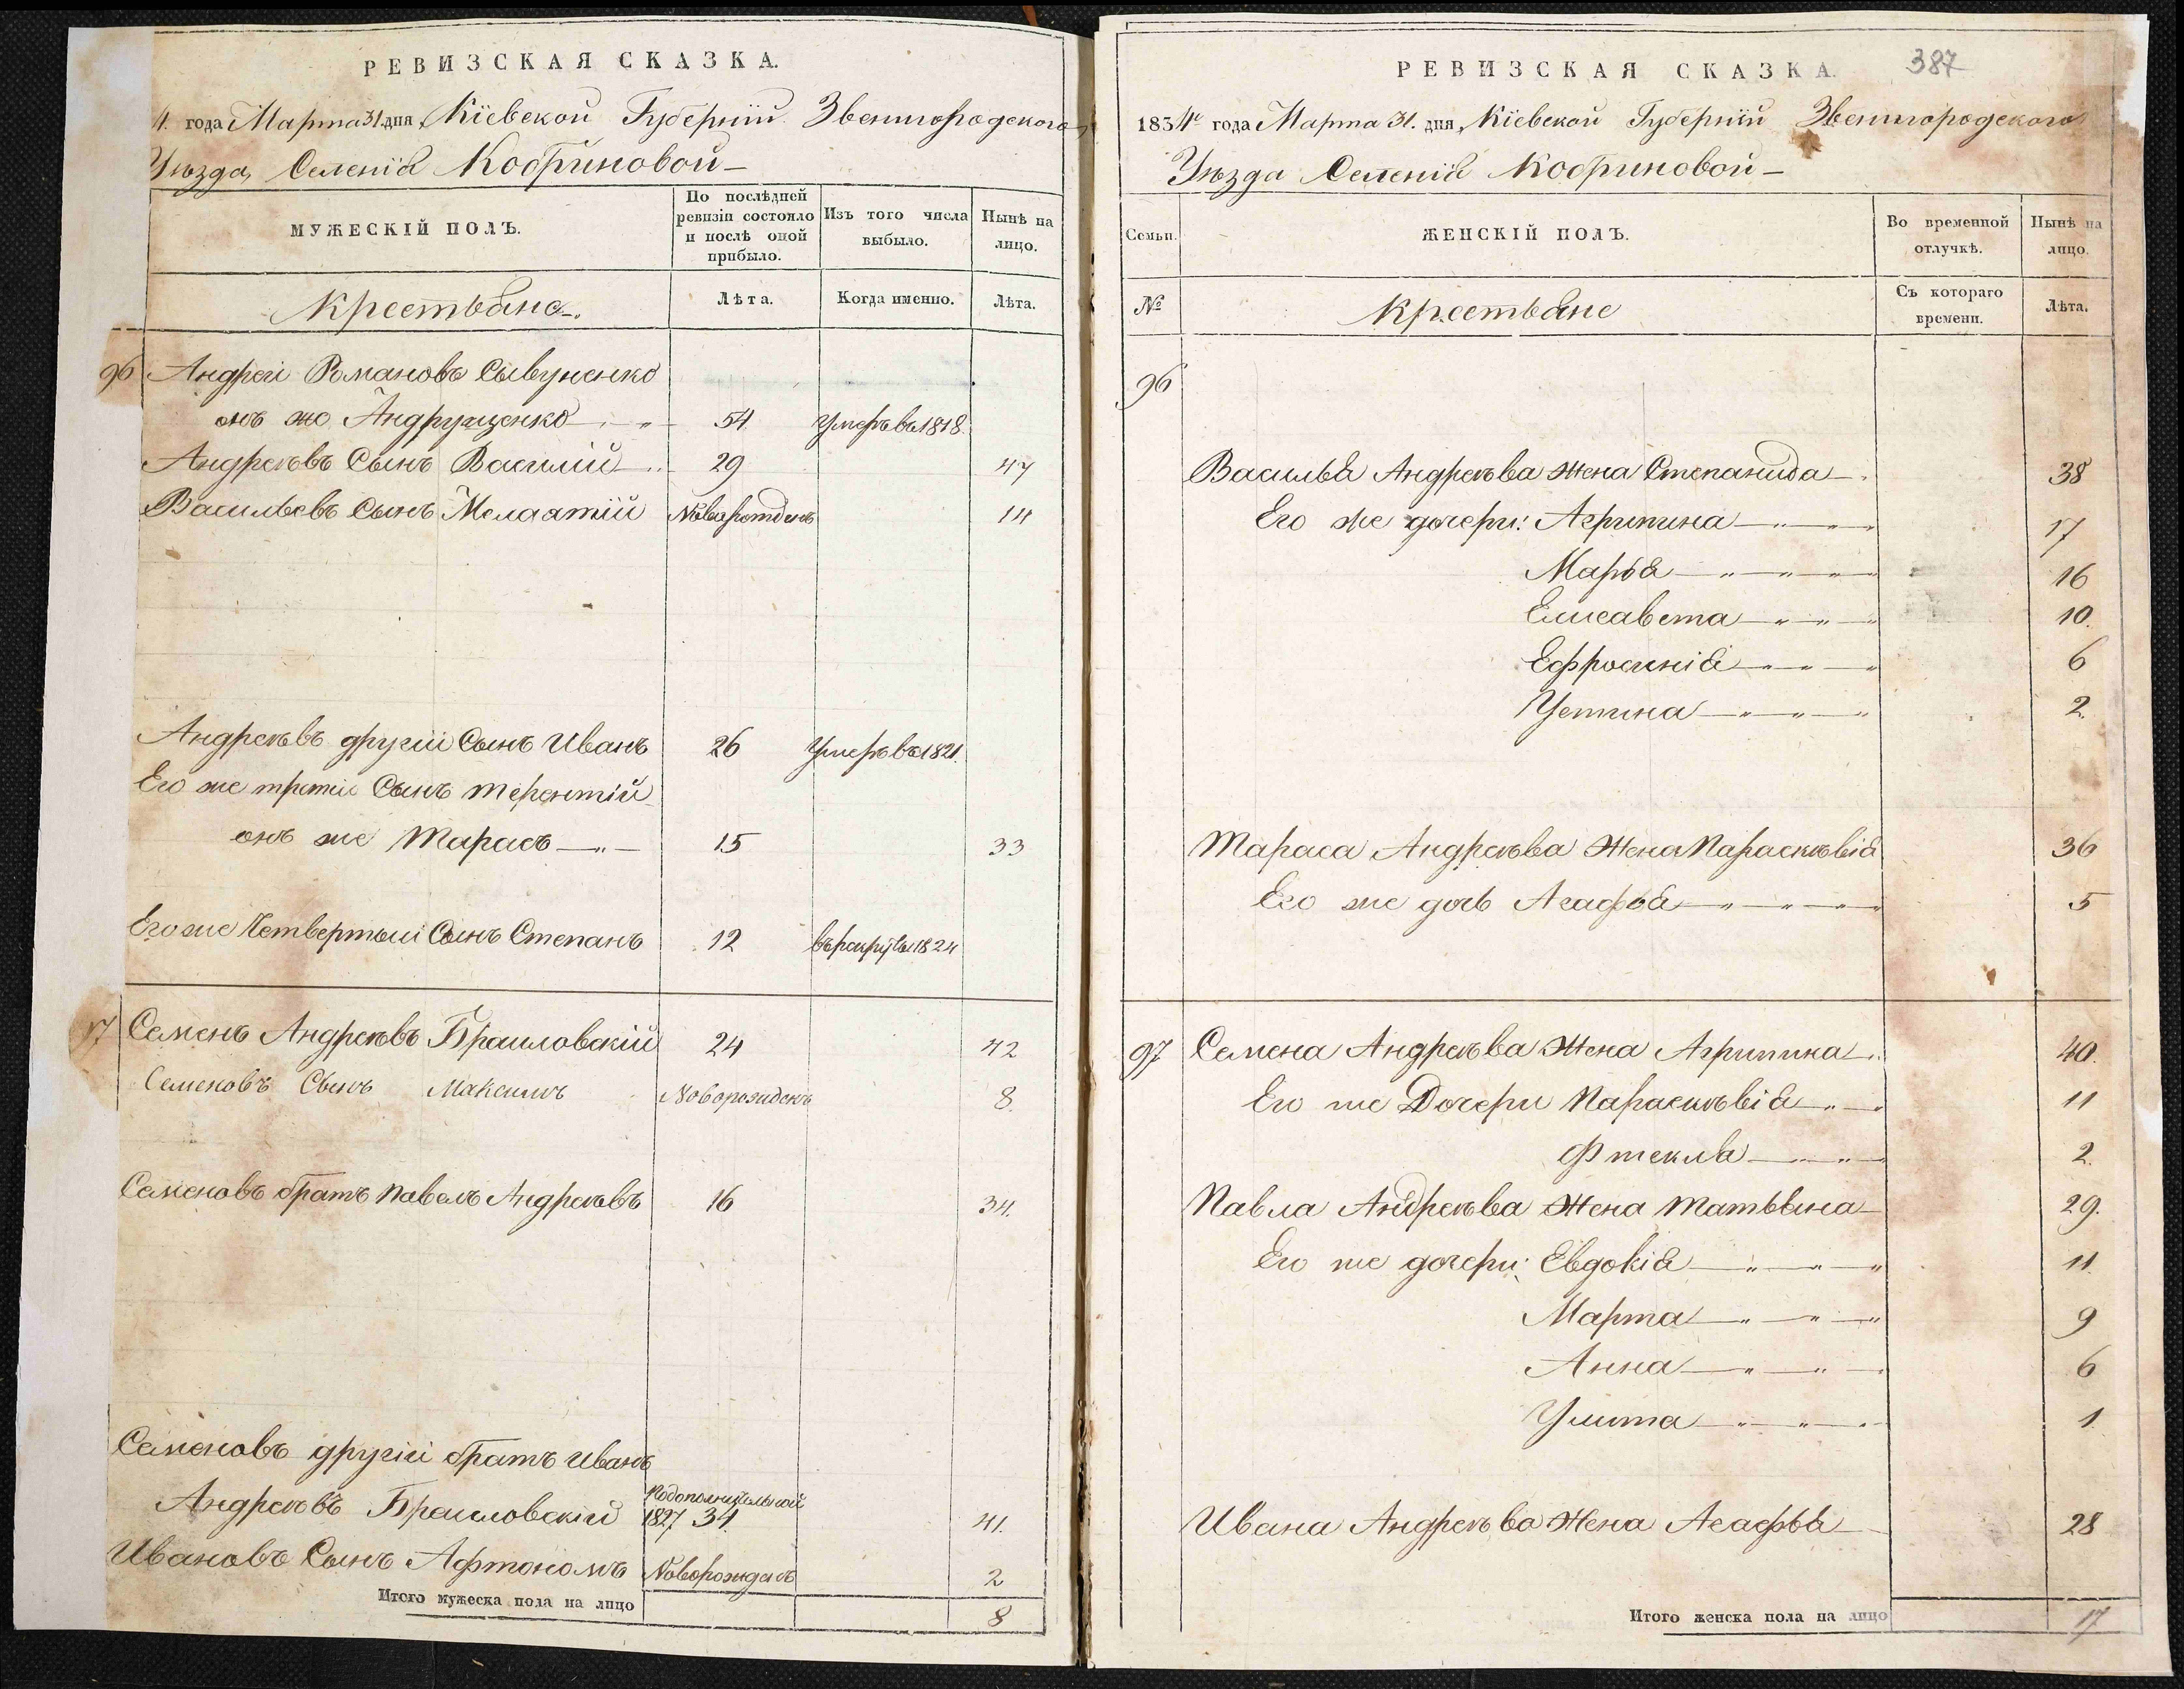 РЕВИЗСКАЯ СКАЗКА.
4. года Марта 31. дня, Кіевской Губерніи Звенигородского
Уѣзда, Селенія Кобриновой
МУЖЕСКІЙ ПОЛЪ.
По послѣдней ревизіи состояло и послѣ оной прибыло.
Изъ того числа выбыло.
Нынѣ на лицо.
Крестьяне.
Лѣта.
Когда именно.
Лѣта.
96 Андрей Романовъ
онъ же Андрущенко 54 Умеръ въ 1818.
Андреевъ Сынъ Василій 29 47
Васильевъ Сынъ Мелаатій Новорожденъ 14
Андреевъ другій Сынъ Иванъ 26 Умеръ въ 1821.
Его же третій Сынъ Терентій
онъ же Тарасъ 15 33
Его же Четвертый Сынъ Степанъ 12 въ рекруты 1824
97 Семенъ Андреевъ Браиловскій 24 42
Семеновъ Сынъ Максимъ Новорожденъ 8.
Семеновъ братъ Павелъ Андреевъ 16 34.
Семеновъ другій братъ Иванъ
Андреевъ Браиловскій 1827 34 41.
Ивановъ Сынъ Афтономъ Новорожденъ 2
Итого мужеска пола на лицо 8
РЕВИЗСКАЯ СКАЗКА. 387
1834 года Марта 31. дня, Кіевской Губерніи Звенигородского
Уѣзда Селенія Кобриновой
Семьи.
ЖЕНСКІЙ ПОЛЪ.
Во временной отлучкѣ.
Нынѣ на лицо.
№
Крестьяне
Съ котораго времени.
Лѣта.
96
Василья Андреева Жена Степанида 38
Его же дочери: Агрипина 17
Марья 16
Елисавета 10.
Ефросинія 6
Устина 2.
Тараса Андреева Жена Парасковія 36
Его же дочь Агафья 5
97 Семена Андреева Жена Агрипина 40.
Его же Дочери Парасковія 11
Фтекла 2.
Павла Андреева Жена Татьяна 29.
Его же дочери: Евдокія 11.
Марта 9
Анна 6
Улита 1
Ивана Андреева Жена Агафья 28
Итого женска пола на лицо 17